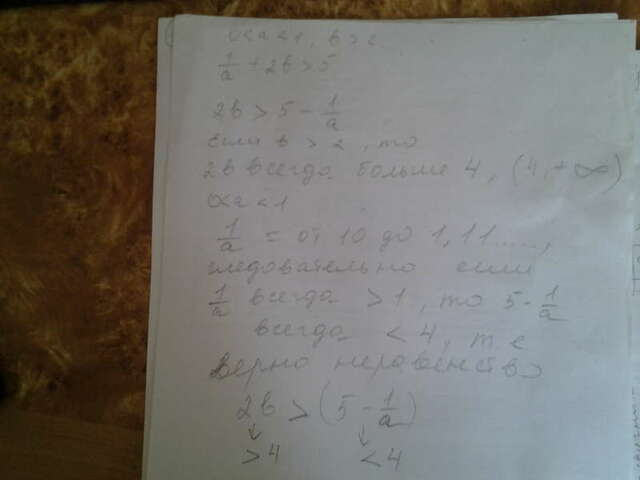 0<a<1, в>2
1/a + 2в > 5
2в > 5 - 1/a
если в > 2, то
2в всегда больше 4, (4, +∞)
0<a<1
1/a = от 10 до 1,11....,
следовательно если
1/a всегда >1, то 5 - 1/a
всегда < 4, т е
верно неравенство
2в > (5 - 1/a)
↓ ↓
>4 <4